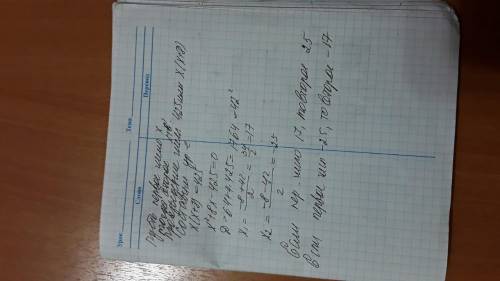 Урок Тема
Слова Перевод
Пусть первое число x
тогда второе x+8
произведение чисел 425 или x(x+8)
Составим ур-е
x(x+8)=425
x²+8x-425=0
D=64+4·425=1764=42²
x₁=(-8+42)/2=34/2=17
x₂=(-8-42)/2=-25
Если пер. число 17, то второе 25
Если первое чис -25, то второе -17